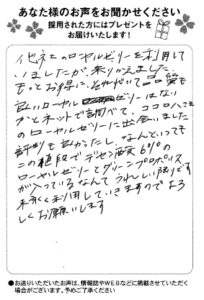 あなた様のお声をお聞かせください
採用された方にはプレゼントを
お届けいたします!
他社さんのローヤルゼリーを利用して
いましたが、乗りかえました。
もっとお得に、それでいて品質も
良いローヤルゼリーはない
かとネットで調べて、ココロハさん
のローヤルゼリーに出会いました
評判も良かったし、なんといっても
この値段でデセン酸6%の
ローヤルゼリーとグリーンプロポリス
が入っているなんてうれしい限りです
末永く利用していきますのでよろ
しくお願いします
●お送りいただいたお声は、情報誌やWEBなどに掲載させていただく
場合がございます。予めご了承ください